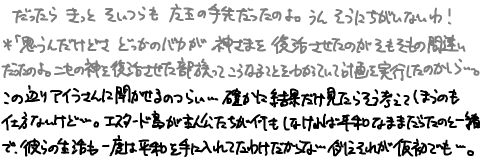 だったら きっと そいつらも 魔王の手先だったのよ。うん そうにちがいないわ！
*「思うんだけどさ どっかのバカが 神さまを 復活させたのが そもそもの間違い
だったのよ。ニセの神を復活させた部族って こうなることをわかっていて計画を実行したのかしら…。
この辺りアイラさんに聞かせるのつらい… 確かに結果だけ見たらそう考えてしまうのも
仕方ないけど…。エスタード島が主人公たちが何もしなければ平和なままだったのと一緒
で、彼らの生活も一度は平和を手に入れてたわけだからなぁ 例えそれが仮初でも…。